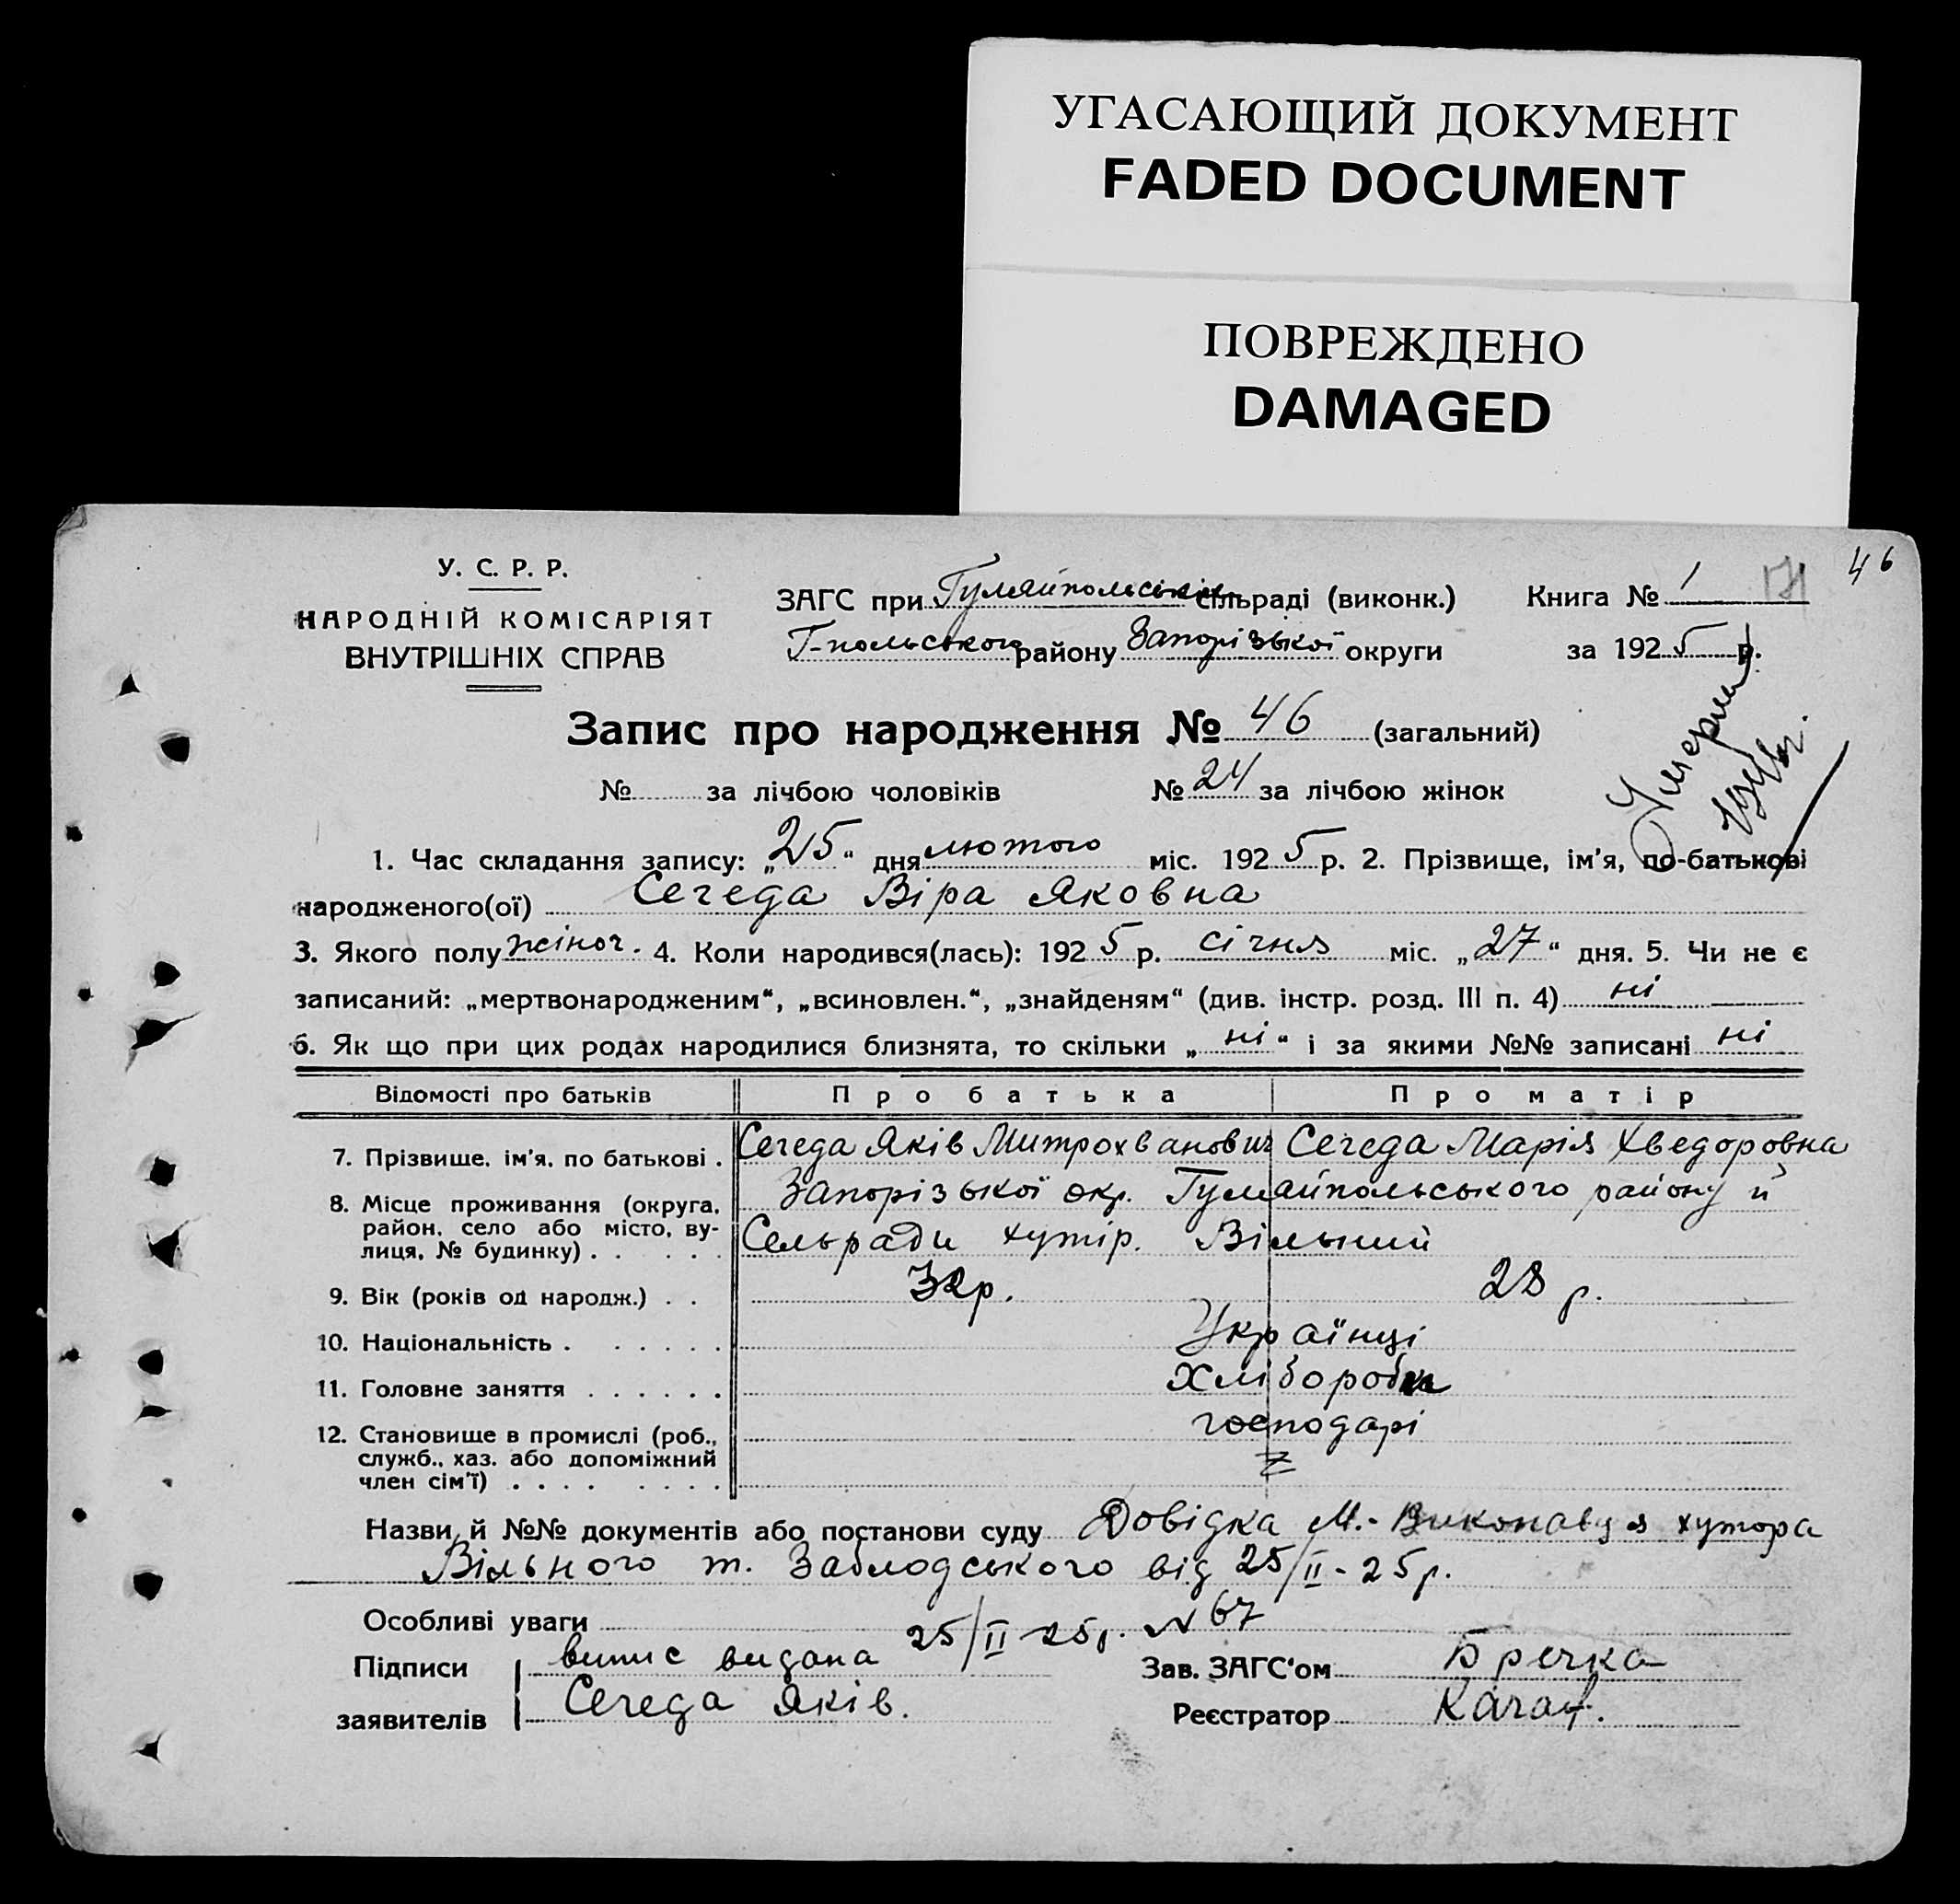 УГАСАЮЩИЙ ДОКУМЕНТ
FADED DOCUMENT
ПОВРЕЖДЕНО
DAMAGED
46
У. С. Р. Р.
НАРОДНІЙ КОМІСАРІЯТ
ВНУТРІШНІХ СПРАВ
ЗАГС при Гуляйпольській сільраді (виконк.)
Г-польського району Запорізької округи
Книга № 1
за 1925 р.
Запис про народження № 46 (загальний)
№ за лічбою чоловіків № 24 за лічбою жінок
Умерла
1. Час складання запису: „25" дня лютого міс. 1925 р. 2. Прізвище, ім'я, по-батькові
народженого(ої) Сегеда Віра Яковна
3. Якого полу жіноч. 4. Коли народився(лась): 1925 р. січня міс. „27" дня. 5. Чи не є
записаний: „мертвонародженим", „всиновлен.", „знайденям" (див. інстр. розд. III п. 4) ні
6. Як що при цих родах народилися близнята, то скільки „ні" і за якими №№ записані ні
Відомості про батьків Про батька Про матір
7. Прізвище, ім'я, по батькові . Сегеда Яків Митрохванович Сегеда Марія Хведоровна
8. Місце проживання (округа, Запорізької окр. Гуляйпольського району й
район, село або місто, ву- Сельради хутір. Вільний
лиця, № будинку) . . . . .
9. Вік (років од народж.) . . 32р. 28 р.
10. Національність . . . . . . Українці
11. Головне заняття . . . . . . Хлібороби
12. Становище в промислі (роб., господарі
служб., хаз. або допоміжний
член сім'ї) . . . . . . . .
Назви й №№ документів або постанови суду Довідка М.-Виконавця хутора
Вільного т. Заблодського від 25/II-25р.
Особливі уваги 25/II-25р. №67
Підписи випис видана Зав. ЗАГС'ом Бречка
заявителів Сегеда Яків. Реєстратор